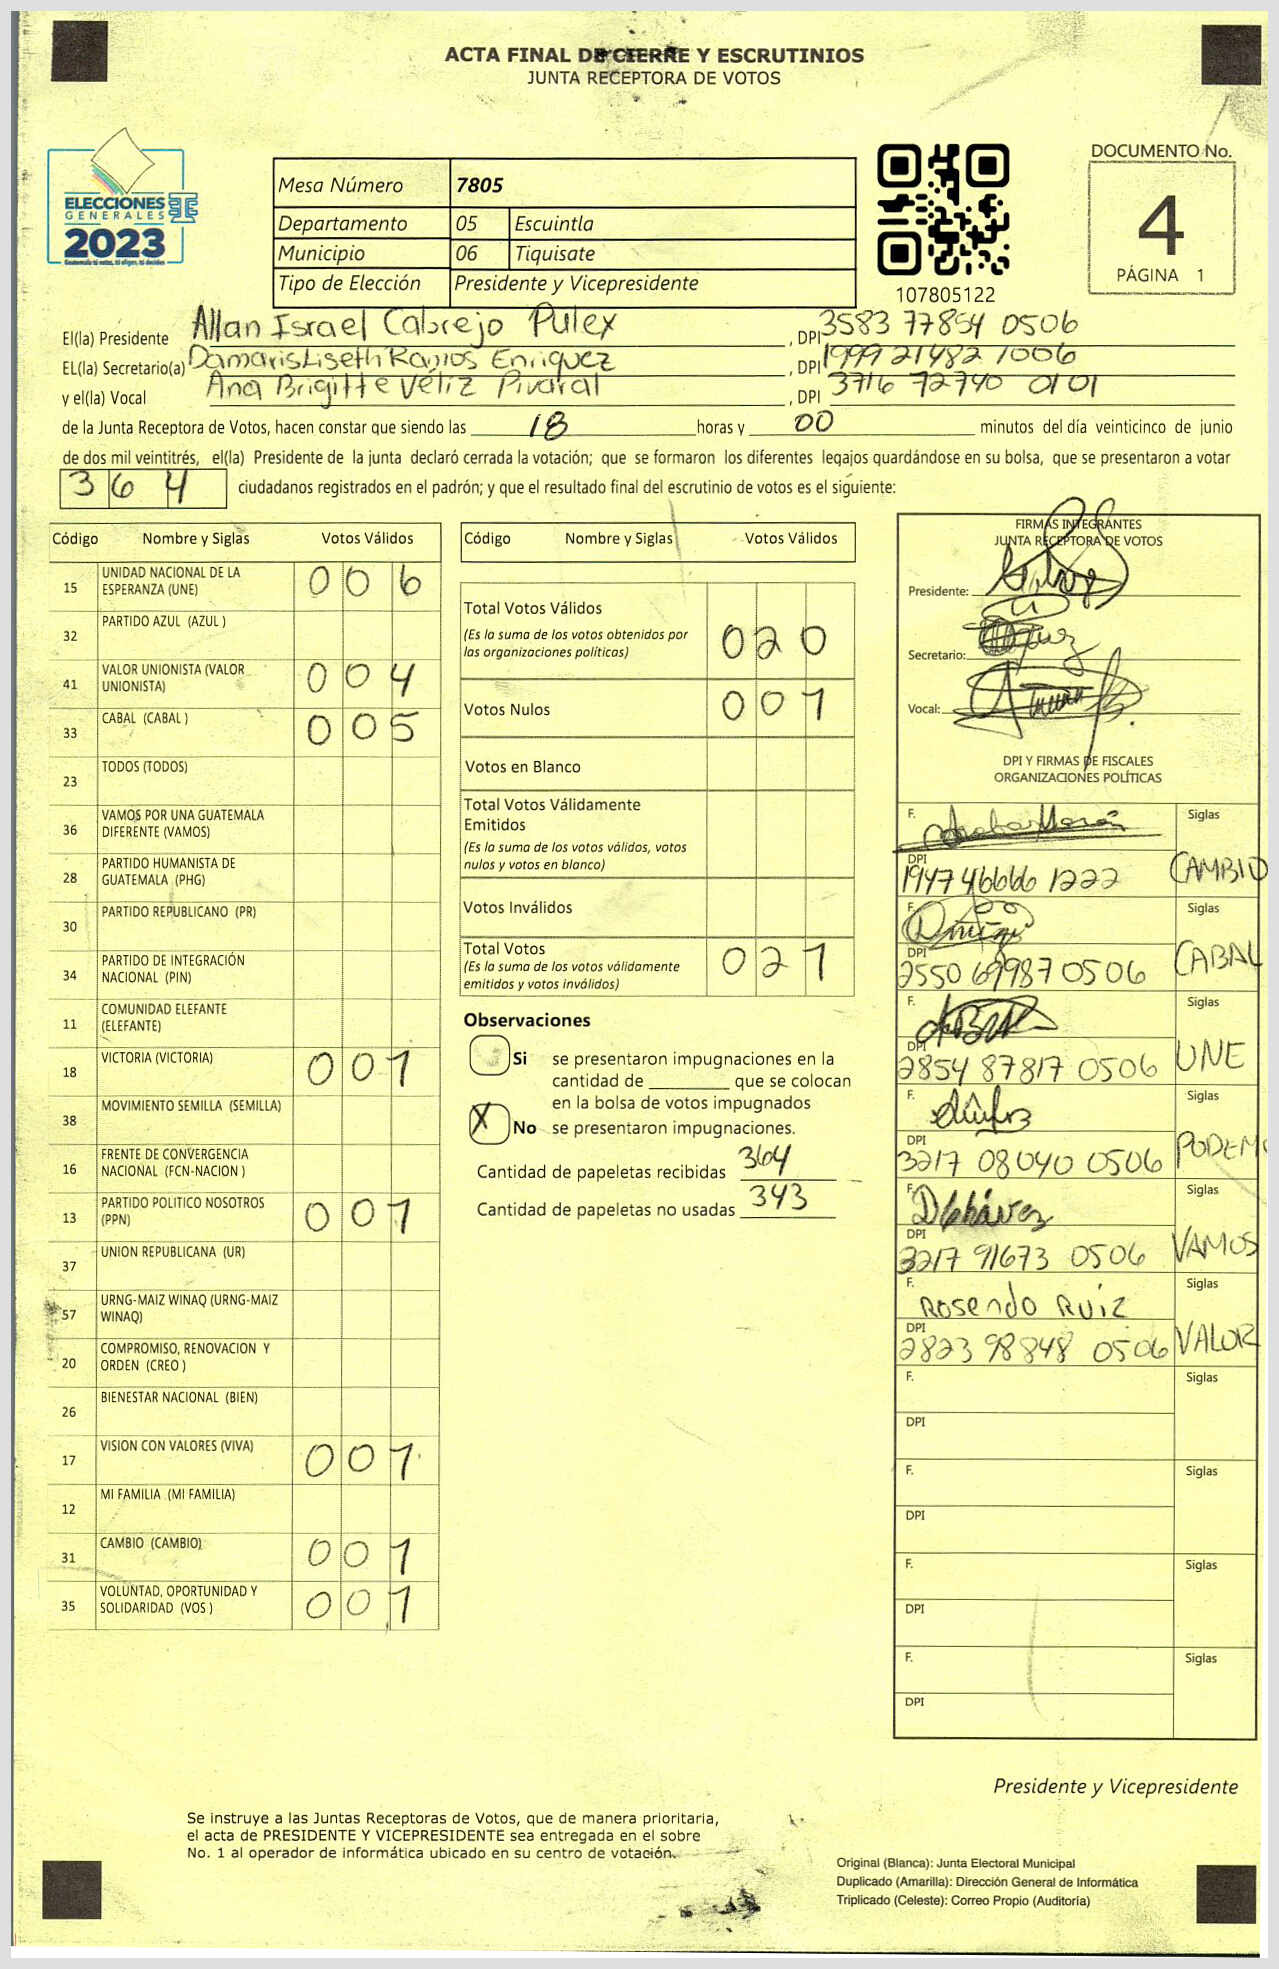 ACTA FINAL DE CIERRE Y ESCRUTINIOS
JUNTA RECEPTORA DE VOTOS
ELECCIONES
GENERALES
2023
Mesa Número 7805
Departamento 05 Escuintla
Municipio 06 Tiquisate
Tipo de Elección Presidente y Vicepresidente
107805122
DOCUMENTO No.
4
PÁGINA 1
El(la) Presidente Allan Israel Cabrejo Pulex, DPI 3583 77854 0506
EL(la) Secretario(a) Damaris Liseth Ramos Enriquez, DPI 1999 21482 1006
y el(la) Vocal Ana Brigitte Véliz Pivaral, DPI 3716 72740 0101
de la Junta Receptora de Votos, hacen constar que siendo las 18 horas y 00 minutos del día veinticinco de junio
de dos mil veintitrés, el(la) Presidente de la junta declaró cerrada la votación; que se formaron los diferentes legajos guardándose en su bolsa, que se presentaron a votar
364 ciudadanos registrados en el padrón; y que el resultado final del escrutinio de votos es el siguiente:
Código Nombre y Siglas Votos Válidos
15 UNIDAD NACIONAL DE LA ESPERANZA (UNE) 0 0 6
32 PARTIDO AZUL (AZUL )
41 VALOR UNIONISTA (VALOR UNIONISTA) 0 0 4
33 CABAL (CABAL ) 0 0 5
23 TODOS (TODOS)
36 VAMOS POR UNA GUATEMALA DIFERENTE (VAMOS)
28 PARTIDO HUMANISTA DE GUATEMALA (PHG)
30 PARTIDO REPUBLICANO (PR)
34 PARTIDO DE INTEGRACIÓN NACIONAL (PIN)
11 COMUNIDAD ELEFANTE (ELEFANTE)
18 VICTORIA (VICTORIA) 0 0 1
38 MOVIMIENTO SEMILLA (SEMILLA)
16 FRENTE DE CONVERGENCIA NACIONAL (FCN-NACION )
13 PARTIDO POLITICO NOSOTROS (PPN) 0 0 1
37 UNION REPUBLICANA (UR)
57 URNG-MAIZ WINAQ (URNG-MAIZ WINAQ)
20 COMPROMISO, RENOVACION Y ORDEN (CREO )
26 BIENESTAR NACIONAL (BIEN)
17 VISION CON VALORES (VIVA) 0 0 1
12 MI FAMILIA (MI FAMILIA)
31 CAMBIO (CAMBIO) 0 0 1
35 VOLUNTAD, OPORTUNIDAD Y SOLIDARIDAD (VOS ) 0 0 1
Código Nombre y Siglas Votos Válidos
Total Votos Válidos 0 2 0
(Es la suma de los votos obtenidos por
las organizaciones políticas)
Votos Nulos 0 0 1
Votos en Blanco
Total Votos Válidamente
Emitidos
(Es la suma de los votos válidos, votos
nulos y votos en blanco)
Votos Inválidos
Total Votos 0 2 1
(Es la suma de los votos válidamente
emitidos y votos inválidos)
Observaciones
Si se presentaron impugnaciones en la
cantidad de ________ que se colocan
en la bolsa de votos impugnados
X No se presentaron impugnaciones.
Cantidad de papeletas recibidas 364
Cantidad de papeletas no usadas 343
FIRMAS INTEGRANTES
JUNTA RECEPTORA DE VOTOS
Presidente:
Secretario:
Vocal:
DPI Y FIRMAS DE FISCALES
ORGANIZACIONES POLÍTICAS
F. Siglas
DPI 1947 46666 1222 CAMBIO
F. Siglas
DPI 2550 69987 0506 CABAL
F. Siglas
DPI 2854 87817 0506 UNE
F. Siglas
DPI 3217 08040 0506 PODEMO
F. DChávez Siglas
DPI 3217 91673 0506 VAMOS
F. Rosendo Ruiz Siglas
DPI 2823 98848 0506 VALOR
F. Siglas
DPI
F. Siglas
DPI
F. Siglas
DPI
F. Siglas
DPI
Presidente y Vicepresidente
Se instruye a las Juntas Receptoras de Votos, que de manera prioritaria,
el acta de PRESIDENTE Y VICEPRESIDENTE sea entregada en el sobre
No. 1 al operador de informática ubicado en su centro de votación.
Original (Blanca): Junta Electoral Municipal
Duplicado (Amarilla): Dirección General de Informática
Triplicado (Celeste): Correo Propio (Auditoría)